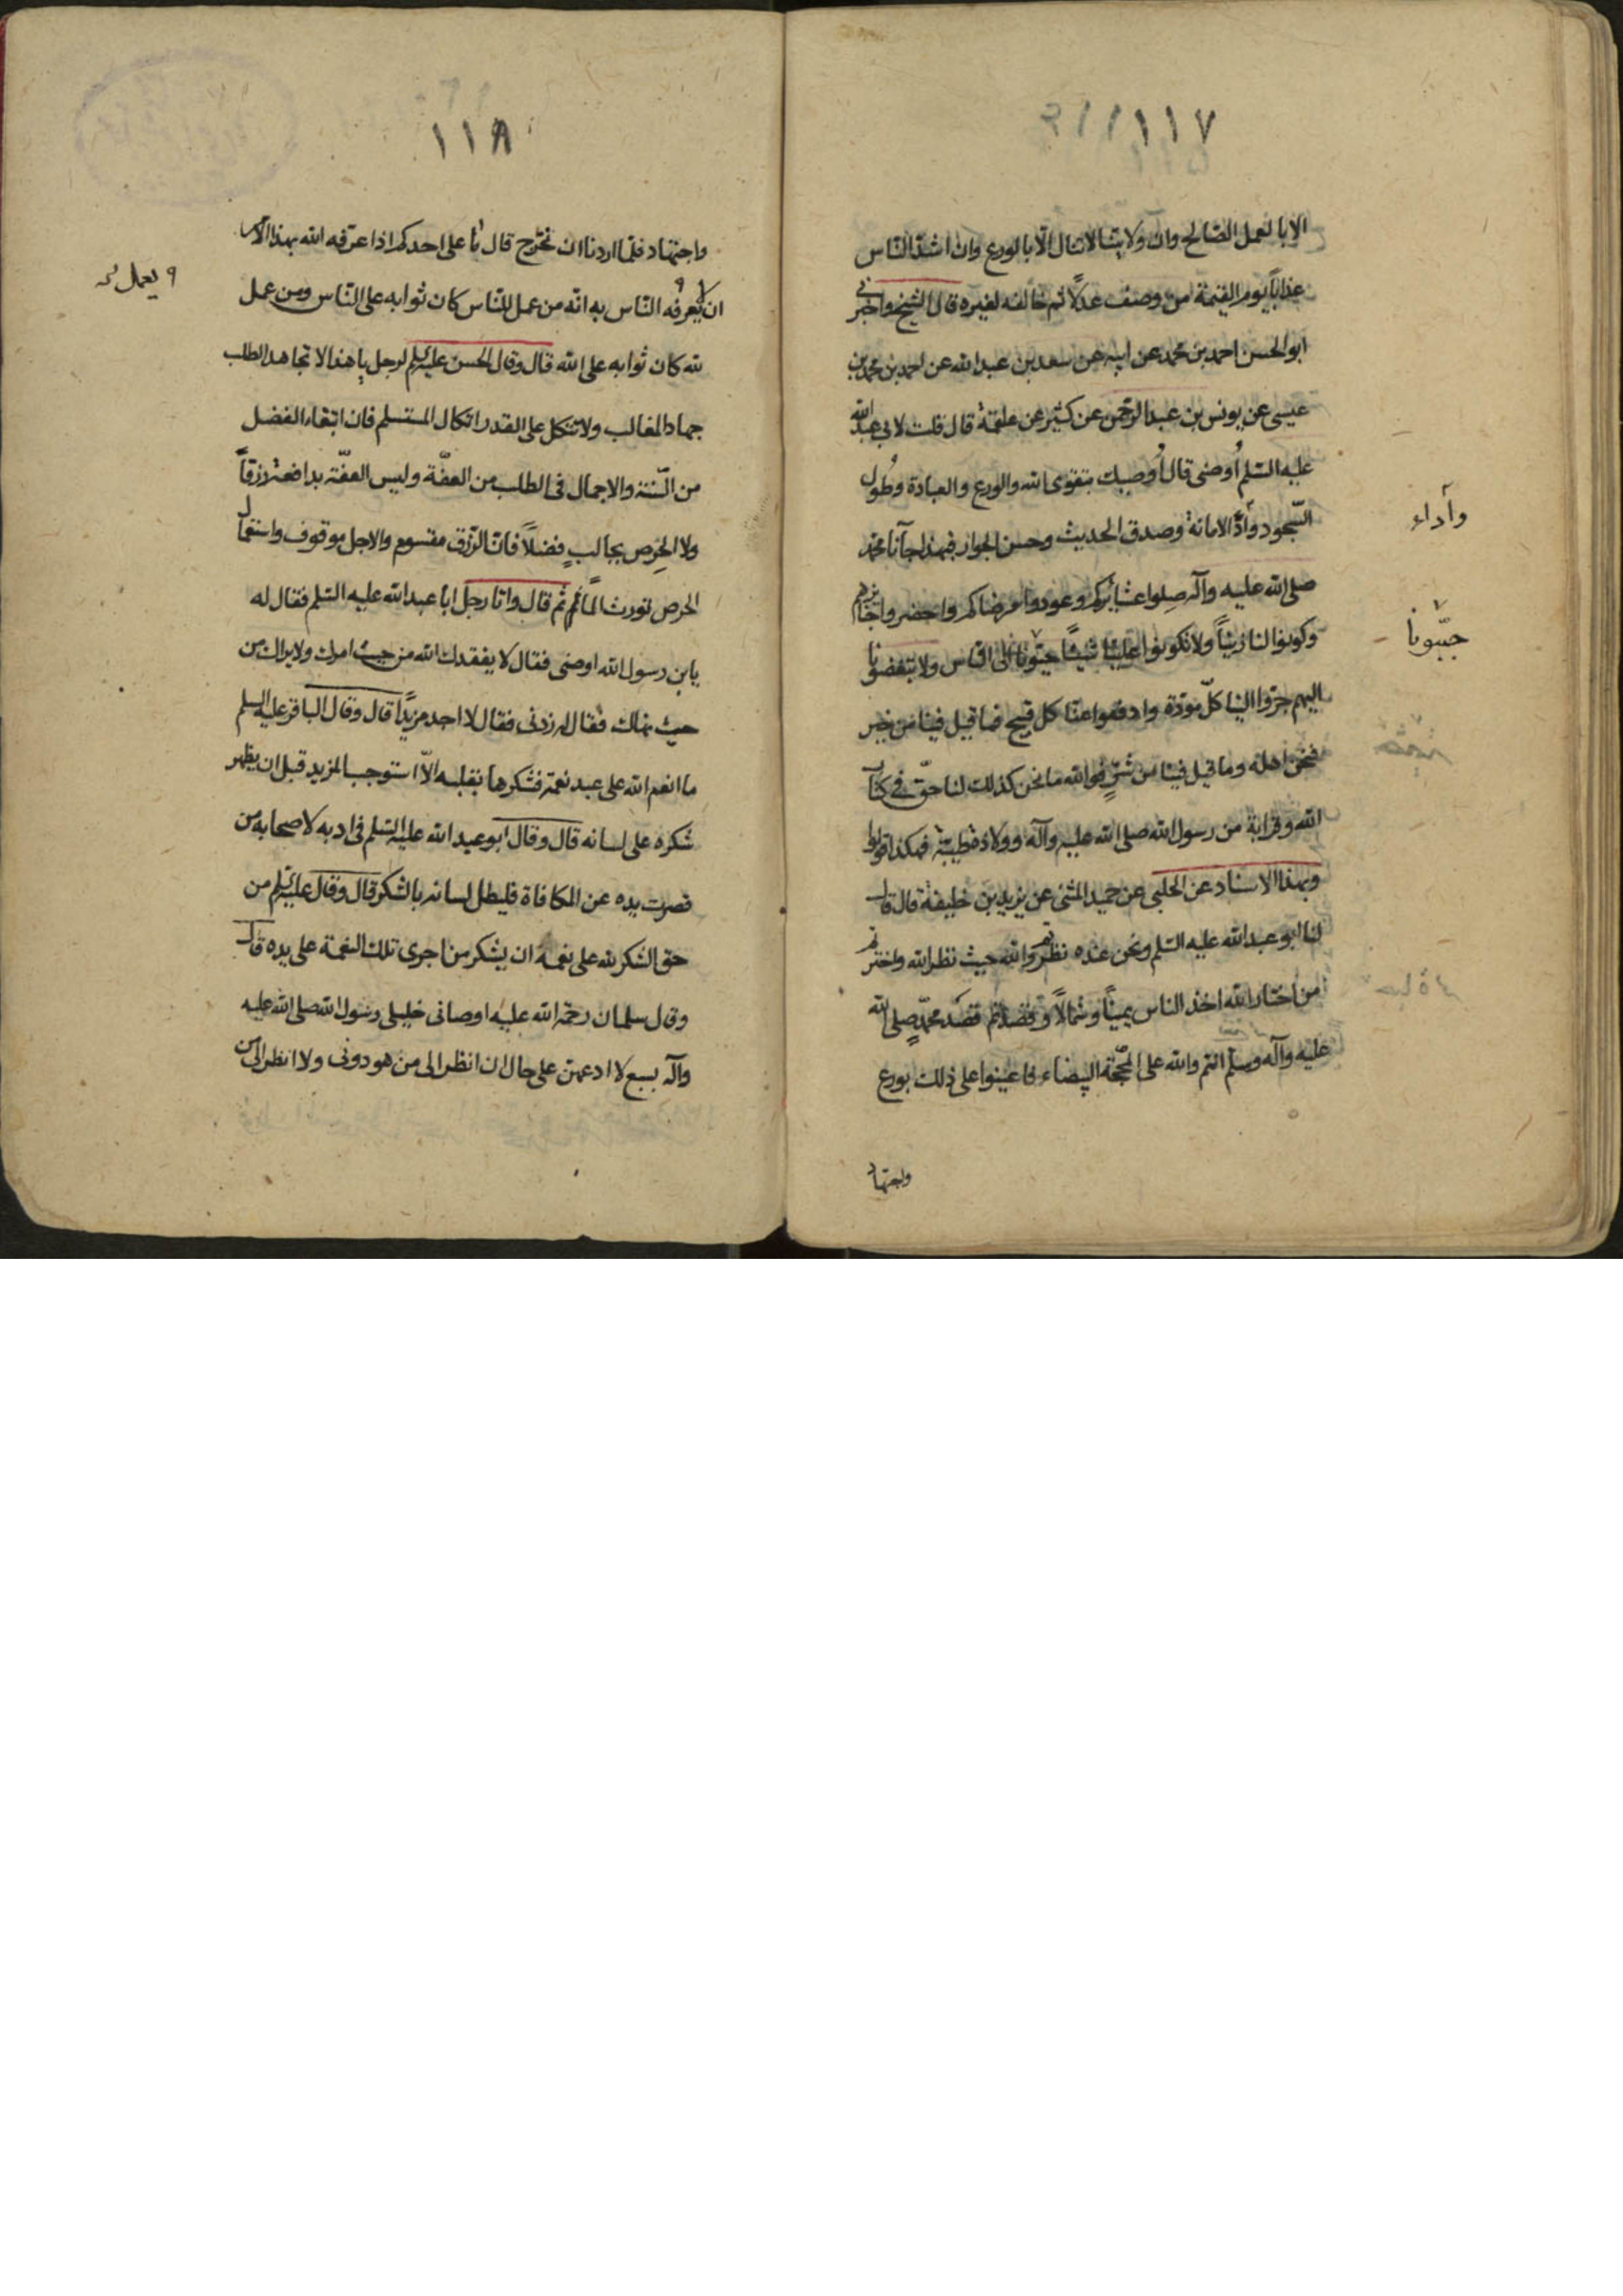 ١١٧
الا بالعمل الصّالح وانّ ولايتنا لا تنال الّا بالورع وان اشدّ النّاس
عذاباً يوم القيمة من وصف عدلاً ثم خالفه لغيره قال الشيخ واخبرنى
ابو الحسن احمد بن محمد عن ابيه عن سعد بن عبد الله عن احمد بن محمد بن
عيسى عن يونس بن عبد الرحمن عن كثير عن علقمة قال قلت لابى عبد الله
عليه السّلم أوصنى قال أوصيك بتقوى الله والورع والعبادة وطُول
السّجود وأدّ الامانة وصدق الحديث وحسن الجوار فبهذا جآنا محمد
وأداء
صلى الله عليه وآله صِلوا عشائركم وعودوا مرضاكم واحضروا جنائزهم
وكونوا لنا زيناً ولا تكونوا علينا شيناً حبّونا الى الناس ولا تبغضونا
حبّبونا
اليهم جرّوا الينا كلّ مودّة وادفعوا عنّا كل قبيح فما قيل فينا من خير
فنحن اهله وما قيل فينا من شرٍّ فوالله ما نحن كذلك لنا حقّ فى كتاب
الله وقرابة من رسول الله صلى الله عليه وآله وولادة طيبة فهكذا قولوا
وبهذا الاسناد عن الحلبى عن حميد المثنى عن يزيد بن خليفة قال قال
لنا ابو عبد الله عليه السّلم ونحن عنده نظرتم والله حيث نظر الله واخترتم
من اختار الله اخذ الناس يميناً وشمالاً وقصدتم قصد محمّدٍ صلى الله
عليه وآله وسلّم انتم والله على المحجّة البيضاء فاعينوا على ذلك بورع
واجتهاد
١١٨
واجتهاد فلمّا اردنا ان نخرج قال ما على احدكم اذا عرّفه الله بهذا الامر
ان لا يعرفه النّاس به انّه من عمل للنّاس كان ثوابه على النّاس ومن عمل
يعمل
لله كان ثوابه على الله قال وقال الحسن عليه السلم لرجل يا هذا لا تجاهد الطلب
جهاد المغالب ولا تتكل على القدر اتكال المستسلم فان ابتغاء الفضل
من السّنة والاجمال فى الطلب من العفّة وليس العفّة بدافعة رزقاً
ولا الحِرص بجالبٍ فضلاً فانّ الرّزق مقسوم والاجل موقوف واستعمال
الحرص تورث ثم قال واتا رجل ابا عبد الله عليه السّلم فقال له
يابن رسول الله اوصنى فقال لا يفقدك الله من حيث امرك ولا يراك من
حيث نهاك فقال له زدنى فقال لا اجد مزيداً قال وقال الباقر عليه السلم
ما انعم الله على عبد نعمة فشكرها بقلبه الّا استوجب المزيد قبل ان يظهر
شكره على لسانه قال وقال ابو عبد الله عليه السّلم فى ادبه لاصحابه من
قصرت يده عن المكافاة فليطل لسانه بالشكر قال وقال عليه السلم من
حق الشكر لله على نعمه ان يشكر من اجرى تلك النعمة على يده قال
وقال سلمان رحمة الله عليه اوصانى خليلى رسول الله صلى الله عليه
وآله بسبع لا ادعهن على حال ان انظر الى من هو دونى ولا انظر الى من